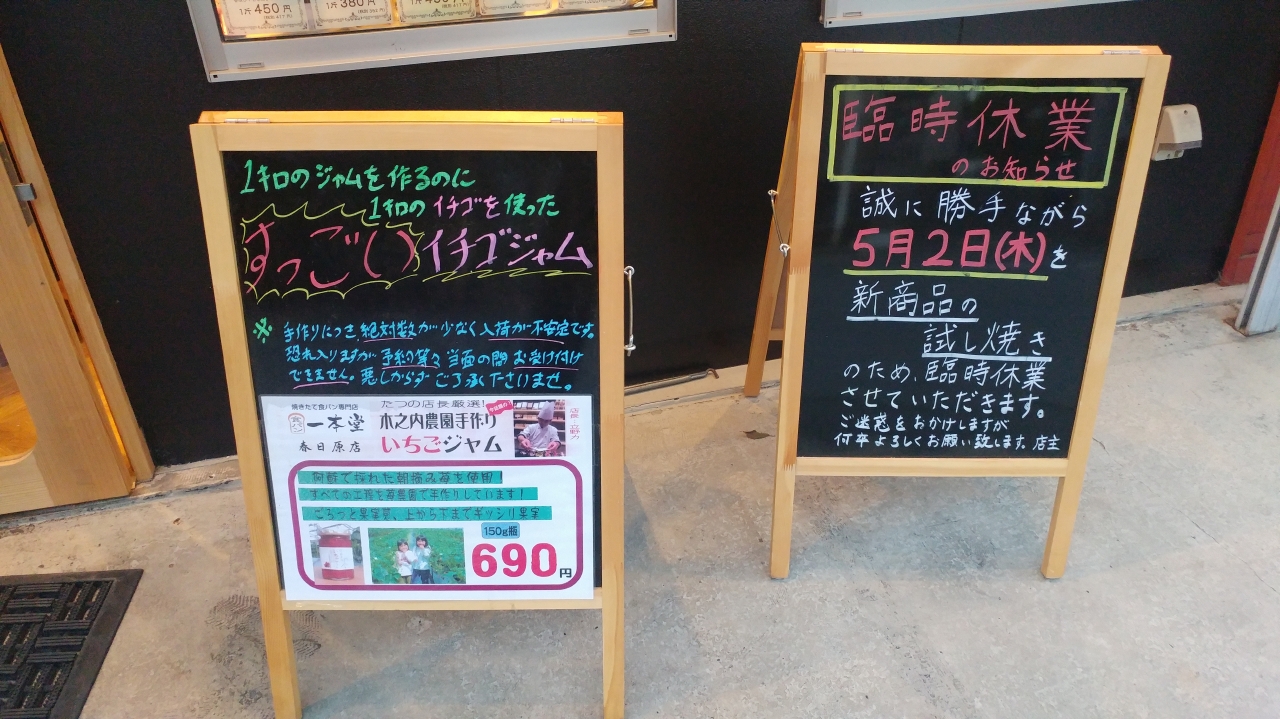 1斤 450円
1斤 380円
1キロのジャムを作るのに
1キロのイチゴを使った
すっごい
イチゴジャム
※ 手作りにつき、絶対数が少なく入荷が不安定です。
恐れ入りますが 予約等々 当面の間 お受け付け
できません。悪しからず ご了承くださいませ。
焼きたて食パン専門店
食パン 一本堂
春日原店
たつの店長厳選!
木之内農園手作り
いちごジャム
阿蘇で採れた朝摘み苺を使用!
すべての工程を苺農園で手作りしています!
ごろっと果実感、上から下までギッシリ果実
150g瓶
690円
臨時休業
のお知らせ
誠に勝手ながら
5月2日(木)を
新商品の
試し焼き
のため、臨時休業
させていただきます。
ご迷惑をおかけしますが
何卒よろしくお願い致します。店主